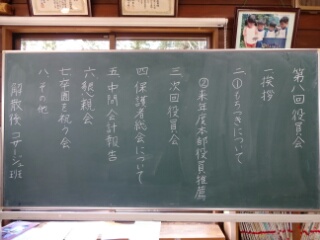 第八回役員会
一 挨拶
二 ①もちつきについて
②来年度本部役員推薦
三 次回役員会
四 保護者総会について
五 中間会計報告
六 懇親会
七 卒園を祝う会
八 その他
解散後 コサージュ班